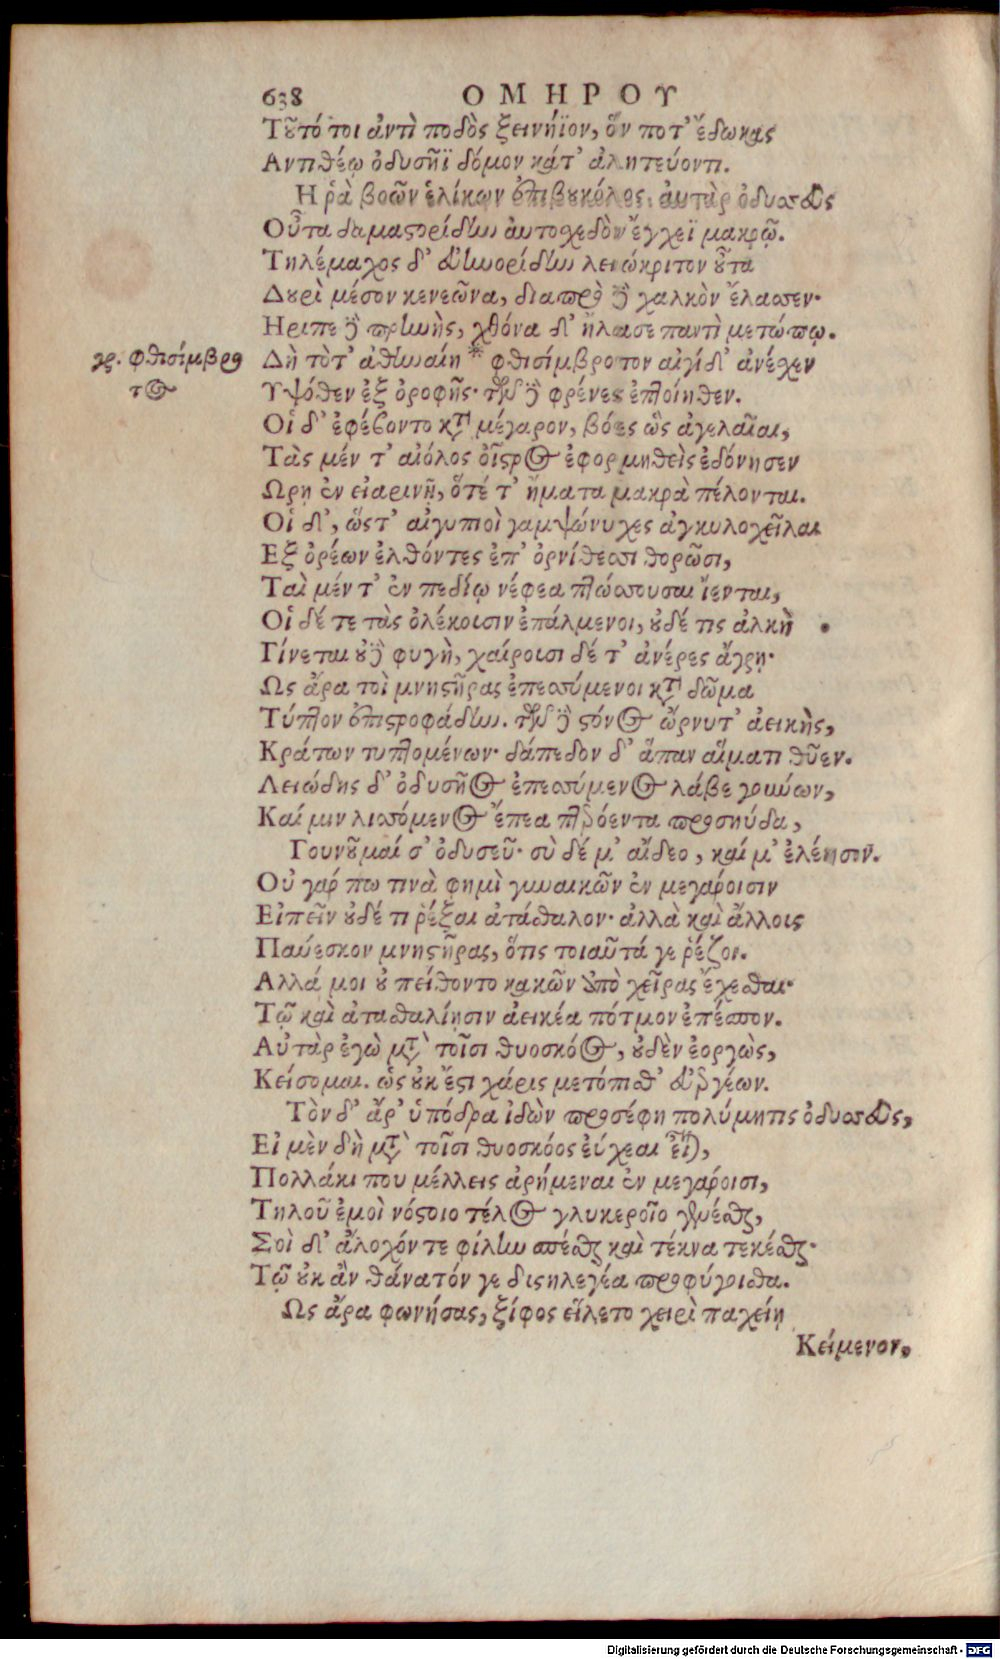 638 ΟΜΗΡΟΥ
Τȣ͂τό τοι ἀντὶ ποδὸς ξεινήϊον, ὅν ποτ' ἔδωκας
Αντιθέῳ ὀδυσῆϊ δόμον κάτ' ἀλητεύοντι.
Η ῥὰ βοῶν ἑλίκων ἐπιβȣκόλος· ἀυτὰρ ὀδυσσεὺς
Οὖτα δαμαςορίδην ἀυτοχεδὸν ἔγχεϊ μακρῷ.
Τηλέμαχος δ' εὐηνορίδην λειώκριτον ȣ̓͂τα
Δȣρὶ μέσον κενεῶνα, διαπρὸ δὲ χαλκὸν ἔλασσεν·
Ηριπε δὲ πρηνὴς, χθόνα δ' ἤλασε παντὶ μετώπῳ.
Δὴ τότ' ἀθηναίη * φθισίμβροτον αἰγίδ' ἀνέχεν
γρ. φθισίμβρο
τος
Υψόθεν ἐξ ὀροφῆς· τῶν δὲ φρένες ἐπτοίηθεν.
Οἱ δ' ἐφέβοντο κατὰ μέγαρον, βόες ὣς ἀγελαῖαι,
Τὰς μέν τ' αἰόλος οἶςρος ἐφορμηθεὶς ἐδόνησεν
Ωρῃ ἐν εἰαρινῇ, ὅτέ τ' ἤματα μακρὰ πέλονται.
Οἱ δ', ὥςτ' αἰγυπιοὶ γαμψώνυχες ἀγκυλοχεῖλαι
Εξ ὀρέων ἐλθόντες ἐπ' ὀρνίθεσσι θορῶσι,
Ταὶ μέν τ' ἐν πεδίῳ νέφεα πτώσσουσαι ἵενται,
Οἱ δέ τε τὰς ὀλέκουσιν ἐπάλμενοι, ȣ̓δέ τις ἀλκὴ
Γίνεται ȣ̓δὲ φυγὴ, χαίρουσι δέ τ' ἀνέρες ἄγρῃ·
Ως ἄρα τοὶ μνηςῆρας ἐπεσσύμενοι κατὰ δῶμα
Τύπτον ἐπιςροφάδην. τῶν δὲ ςόνος ὤρνυτ' ἀεικὴς,
Κράτων τυπτομένων· δάπεδον δ' ἅπαν αἵματι θῦεν.
Λειώδης δ' ὀδυσῆος ἐπεσσύμενος λάβε γούνων,
Καί μιν λισσόμενος ἔπεα πτερόεντα προσηύδα,
Γουνȣ͂μαί σ' ὀδυσεῦ· σὺ δέ μ' αἴδεο, καί μ' ἐλέησον.
Οὐ γάρ πω τινὰ φημὶ γυναικῶν ἐν μεγάροισιν
Εἰπεῖν ȣ̓δέ τι ῥέξαι ἀτάσθαλον· ἀλλὰ καὶ ἄλλους
Παύεσκον μνηςῆρας, ὅτις τοιαῦτά γε ῥέζοι.
Αλλά μοι ȣ̓ πείθοντο κακῶν ἀπὸ χεῖρας ἔχεσθαι·
Τῷ καὶ ἀτασθαλίῃσιν ἀεικέα πότμον ἐπέσπον.
Αὐτὰρ ἐγὼ μετὰ τοῖσι θυοσκόος, ȣ̓δὲν ἐοργὼς,
Κείσομαι. ὡς ȣ̓κ ἔςι χάρις μετόπισθ' εὐεργέων.
Τὸν δ' ἄρ' ὑπόδρα ἰδὼν προσέφη πολύμητις ὀδυσσεὺς,
Εἰ μὲν δὴ μετὰ τοῖσι θυοσκόος εὔχεαι εἶναι,
Πολλάκι που μέλλεις ἀρήμεναι ἐν μεγάροισι,
Τηλοῦ ἐμοὶ νόςοιο τέλος γλυκεροῖο γενέσθαι,
Σοὶ δ' ἄλοχόν τε φίλην σπέσθαι καὶ τέκνα τεκέσθαι·
Τῷ ȣ̓κ ἂν θάνατόν γε δυσηλεγέα προφύγοισθα.
Ως ἄρα φωνήσας, ξίφος εἵλετο χειρὶ παχείῃ
Κείμενον,
Digitalisierung gefördert durch die Deutsche Forschungsgemeinschaft - DFG